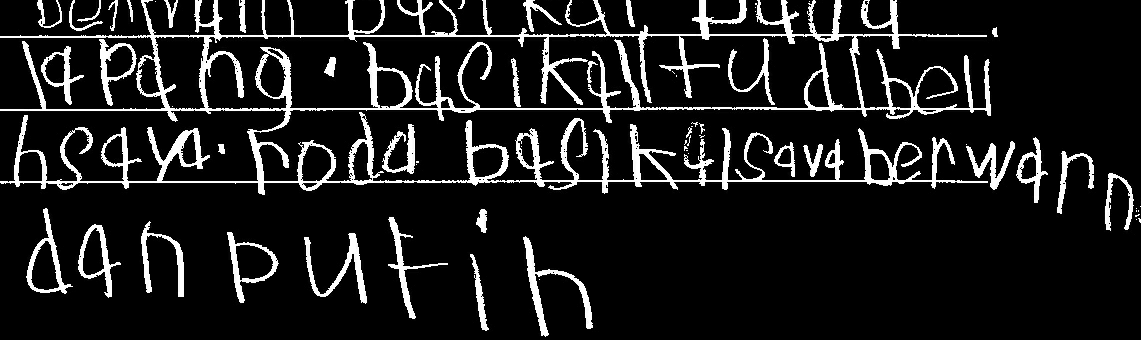 basikal pada
lapang. basikal itu dibeli
hsaya. roda basikal saya berwarn
dan putih